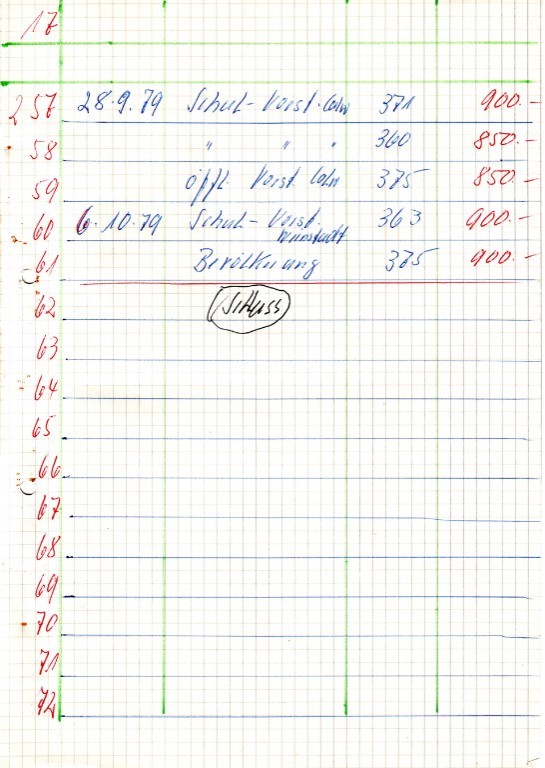 17
257 28.9.79 Schul-Vorst. Coln 371 900.-
58 " " " 360 850.-
59 öffl. Vorst. Coln 375 850.-
60 6.10.79 Schul-Vorst. 363 900.-
61 Bevölkerung 375 900.-
62 Schluss
63
64
65
66
67
68
69
70
71
72